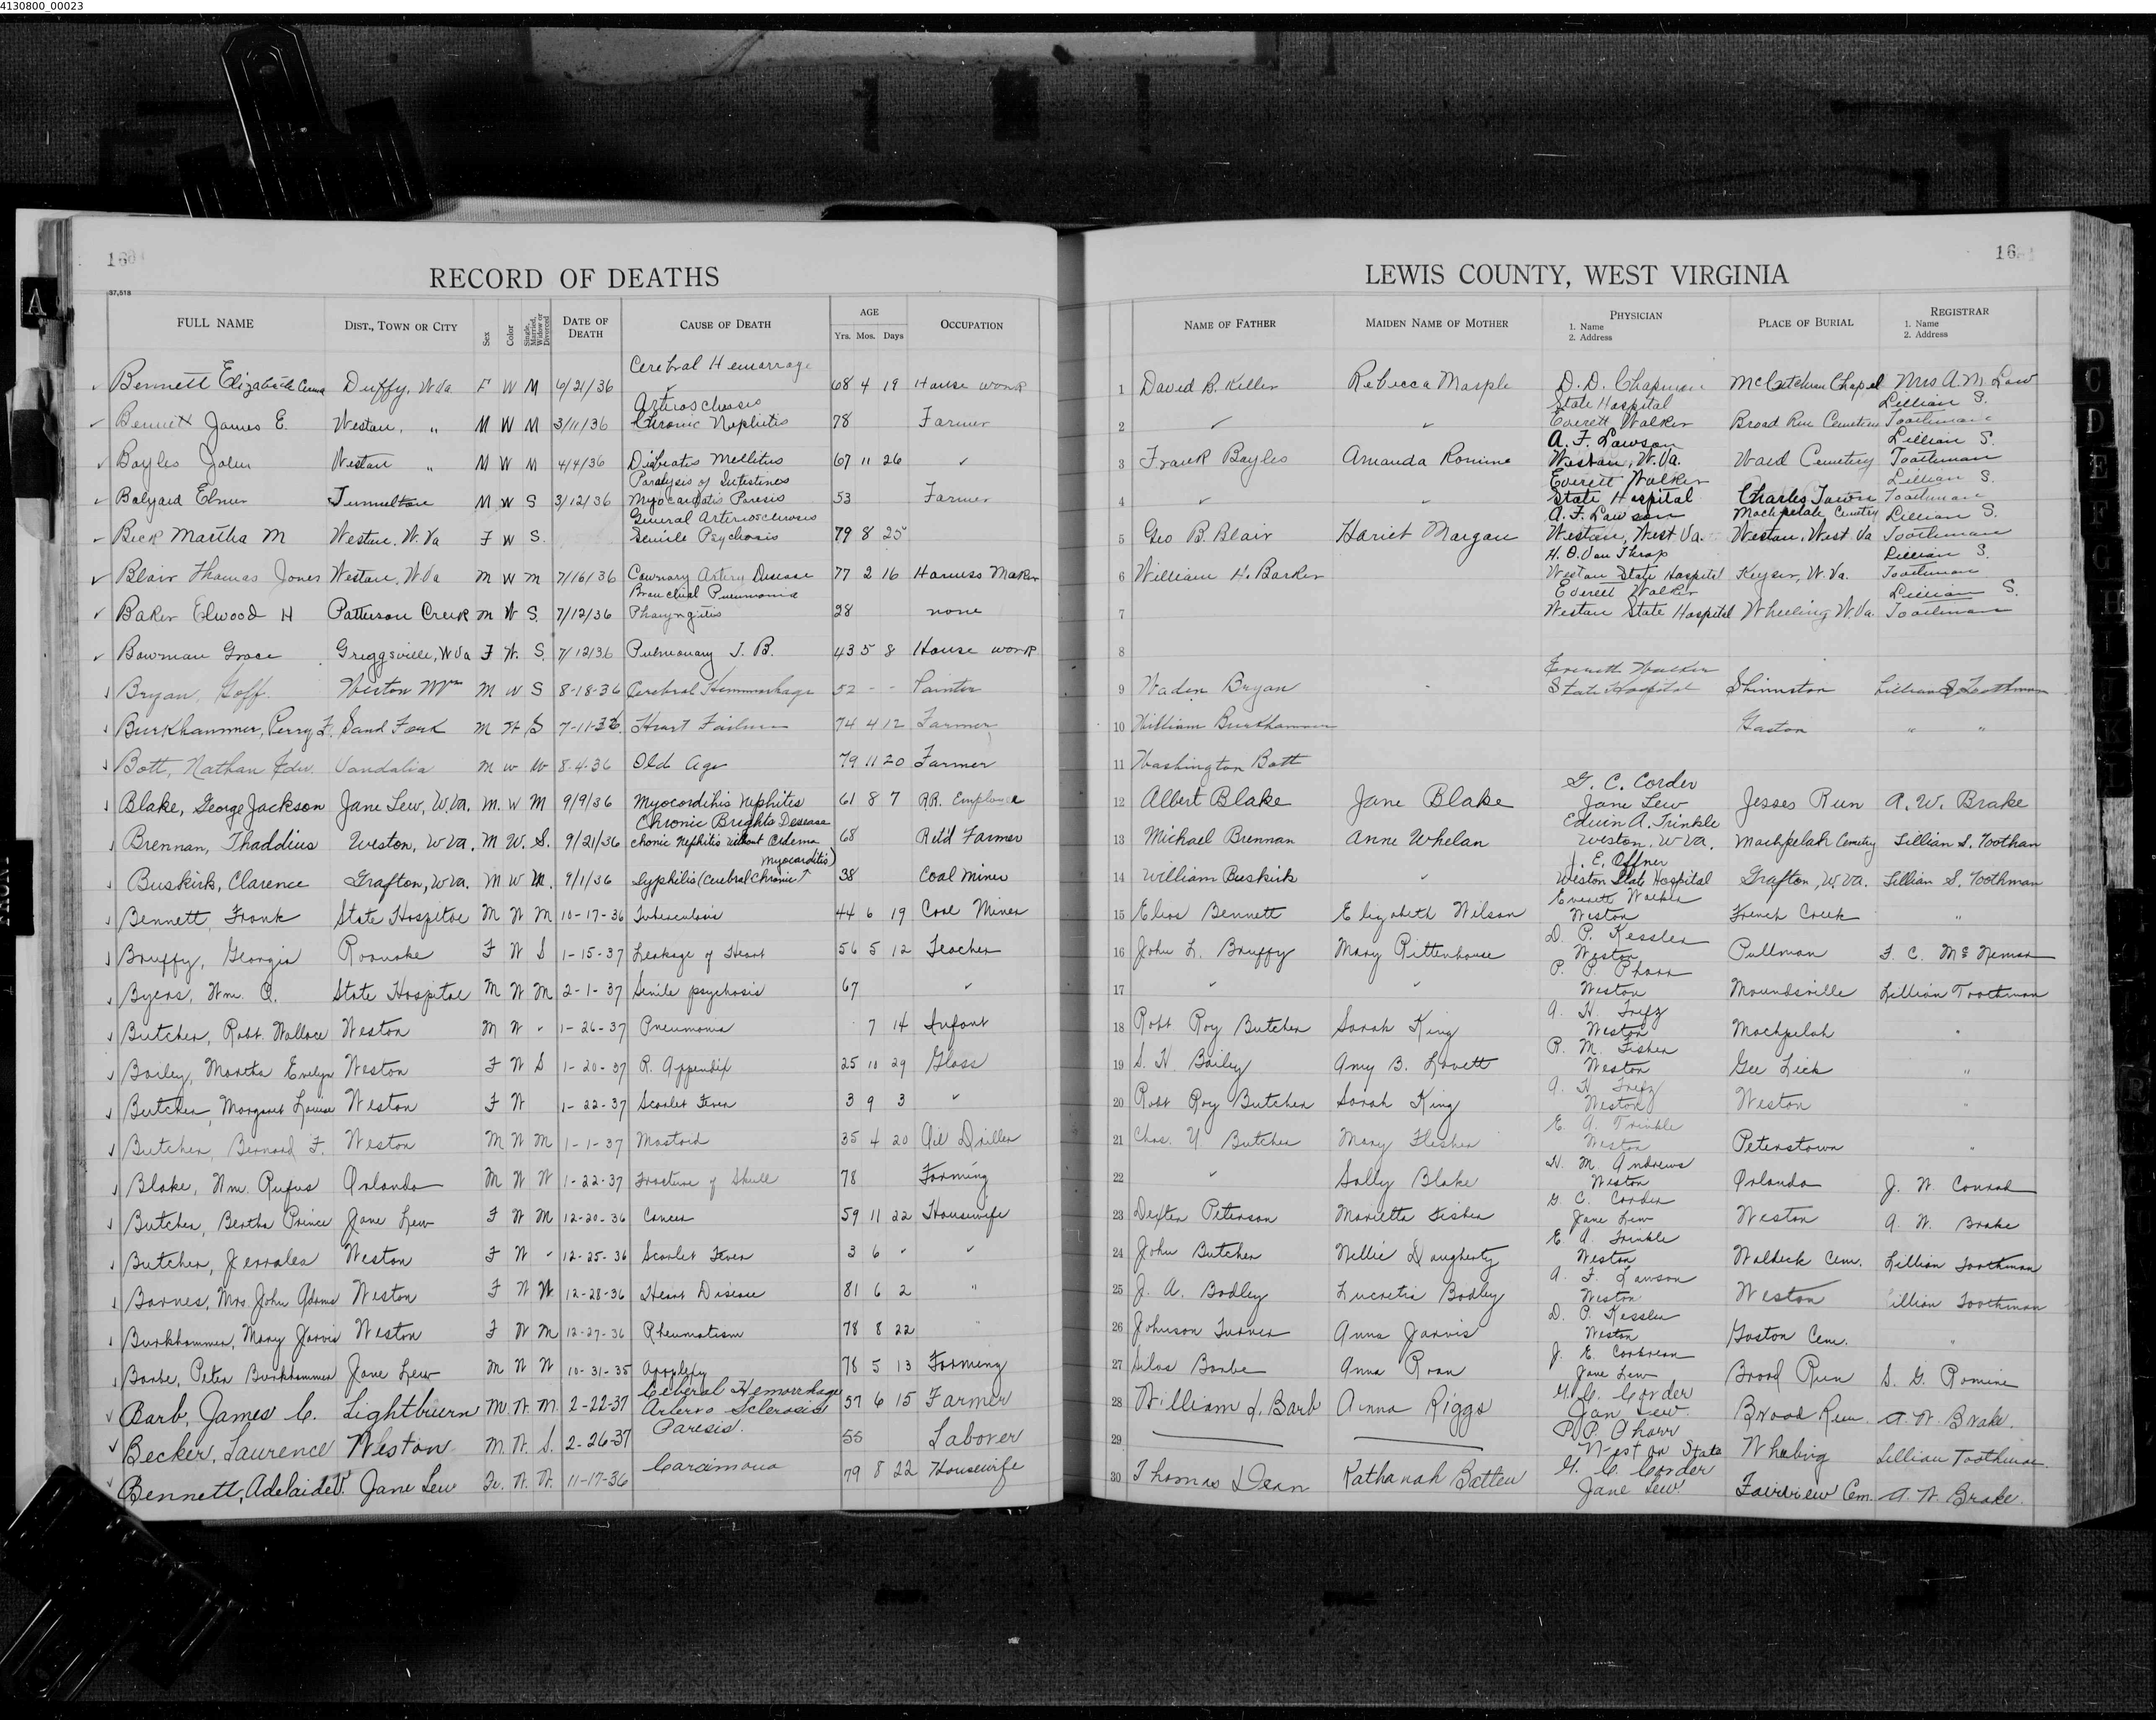 4130800_00023
160
RECORD OF DEATHS
37,518
FULL NAME DIST., TOWN OR CITY Sex Color Single, Married, Widow or Divorced DATE OF DEATH CAUSE OF DEATH AGE Yrs. Mos. Days OCCUPATION
Cerebral Hemorrage
Bennett Elizabeth Duffy, W.Va F W M 6/21/36 ✓ 68 4 19 House work
Bennett James E. Weston, " M W M 3/11/36 Chronic Nephitis 78 Farmer
Bayles John Weston " M W M 4/4/36 Diabiatis Mellitus 67 11 26 ✓
Paralysis of Intestines
Balyard Elmer M W S 3/12/36 Paresis 53 Farmer
General Arteriosclerosis
Beck Martha M Weston, W.Va F W S. Senile Psychosis 79 8 25
Blair Thomas Jones Weston, W.Va M W M 7/16/36 Coronary Artery Disease 77 2 16 Harness Maker
Bronchial Pneumonia
Baker Elwood H Patterson Creek M W S. 7/12/36 Pharyngitis 28 none
Bowman Grace Griggsville, W Va F W. S. 7/12/36 Pulmonary T. B. 43 5 8 House work
Bryan, Goff. Weston M W S 8-18-36 Cerebral Hemmorhage 52 - - Painter
Burkhammer, Perry F. Sand Fork M W S 7-11-36 Heart Failure 74 4 12 Farmer
Bott, Nathan Edw. Vandalia M W W 8-4-36 Old Age 79 11 20 Farmer
Blake, George Jackson Jane Lew, W.Va. M. W M 9/9/36 Myocordihis Nephites 61 8 7 RR. Employee
Chronic Brights Desease
Brennan, Thaddius Weston, W Va. M W. S. 9/21/36 chonic Nephitis without Oedema 68 Ret'd Farmer
Myocarditis)
Buskirk, Clarence Grafton, W Va. M W M. 9/1/36 Syphilis (Cerebral Chronic ↑ 38 Coal Miner
Bennett, Frank State Hospital M W M 10-17-36 Tuberculosis 44 6 19 Coal Miner
Bruffy, Georgia Roanoke F W S 1-15-37 Leakage of Heart 56 5 12 Teacher
Byers, Wm. State Hospital M W M 2-1-37 Senile psychosis 67 ✓
Butcher, Robt. Wallace Weston M W - 1-26-37 Pneumonia 7 14 Infant
Bailey, Martha Evelyn Weston F W S 1-20-37 R. Appendix 25 10 29 Glass
Butcher, Margaret Louise Weston F W 1-22-37 Scarlet Fever 3 9 3 ✓
Butcher, Bernard F. Weston M W M 1-1-37 Mastoid 35 4 20 Oil Driller
Blake, Wm. Rufus Orlando M W W 1-22-37 Fracture of Skull 78 Farming
Butcher, Bertha Prince Jane Lew F W M 12-20-36 Cancer 59 11 22 Housewife
Butcher, Jerrales Weston F W - 12-25-36 Scarlet Fever 3 6 ✓ ✓
Barnes, Mrs. John Adams Weston F W W 12-28-36 Heart Disease 81 6 2 "
Burkhammer, Mary Jarvis Weston F W M 12-27-36 Rheumatism 78 8 22 "
Barbe, Peter Burkhammer Jane Lew M W W 10-31-35 Apoplexy 78 5 13 Farming
Cebral Hemorrhage
Barb, James C. Lightburn M. W. M. 2-22-37 Artero Sclerosis 57 6 15 Farmer
Becker, Laurence Weston M. W. S. 2-26-37 Paresis. 55 Laborer
Bennett, Adelaide Jane Lew Fe. W. W. 11-17-36 Carcimona 79 8 22 Housewife
16
LEWIS COUNTY, WEST VIRGINIA
NAME OF FATHER MAIDEN NAME OF MOTHER PHYSICIAN 1. Name 2. Address PLACE OF BURIAL REGISTRAR 1. Name 2. Address
1 David B. Keller Rebecca Masple D. D. Chapman McCutcheon Chapel Mrs A. M. Law
State Hospital Lillian S.
2 ✓ ✓ Everett Walker Broad Run Cemetery Toothman
A. F. Lawson Lillian S.
3 Frank Bayles Amanda Romine Weston, W. Va. Ward Cemetery Toothman
Everett Walker Lillian S.
4 ✓ ✓ State Hospital Charles Town Toothman
A. F. Lawson Machpelah Cemetery Lillian S.
5 Geo B. Blair Hariet Morgan Weston, West Va. Weston, West Va Toothman
H. O. Van Throp Lillian S.
6 William H. Barker Weston State Hospital Keyser, W. Va. Toothman
Everett Walker Lillian S.
7 Weston State Hospital Wheeling W. Va. Toothman
8
Everett Walker
9 Waden Bryan State Hospital Shinnston Lillian S Toothman
10 William Burkhammer Gaston " "
11 Washington Bott
G. C. Corder
12 Albert Blake Jane Blake Jane Lew Jesses Run A. W. Brake
Edwin A. Trinkle
13 Michael Brennan Anne Whelan Weston, W Va. Machpelah Cemetry Lillian S. Toothan
J. E. Offner
14 William Buskirk ✓ Weston State Hospital Grafton, W. Va. Lillian S. Toothman
Everett Walker
15 Elias Bennett Elizabeth Wilson Weston French Creek "
D. P. Kessler
16 John L. Bruffy Mary Rittenhouse Weston Pullman F. C. McNemar
P. P. Pharr
17 ✓ ✓ Weston Moundsville Lillian Toothman
18 Robt Roy Butcher Sarah King Weston Machpelah "
R. M. Fisher
19 S. H. Bailey Amy B. Lovett Weston Gee Lick "
20 Robt Roy Butcher Sarah King Weston Weston "
E. A. Trinkle
21 Chas. U Butcher Mary Flesher Weston Peterstown "
H. M. Andrews
22 ✓ Sally Blake Weston Orlando J. W. Conrad
G. C. Corder
23 Dexter Peterson Marietta Fisher Jane Lew Weston A. W. Brake
E. A. Trinkle
24 John Butcher Nellie Daugherty Weston Waldeck Cem. Lillian Toothman
A. F. Lawson
25 J. A. Bodley Lucretia Bodley Weston Weston Lillian Toothman
D. P. Kessler
26 Johnson Turner Anna Jarvis Weston Gaston Cem. "
27 Silas Barbe Anna Roan Jane Lew Broad Run S. G. Romine
G. C. Corder
28 William L. Barb Anna Riggs Jan Lew. Broad Run. A. W. Brake.
P. P. Pharr
29 Weston State Lillian Toothman
G. C. Corder
30 Thomas Dean Kathanah Batten Jane Lew. Fairview Cem. A. W. Brake.
A
C
D
E
F
G
H
I
J
K
L